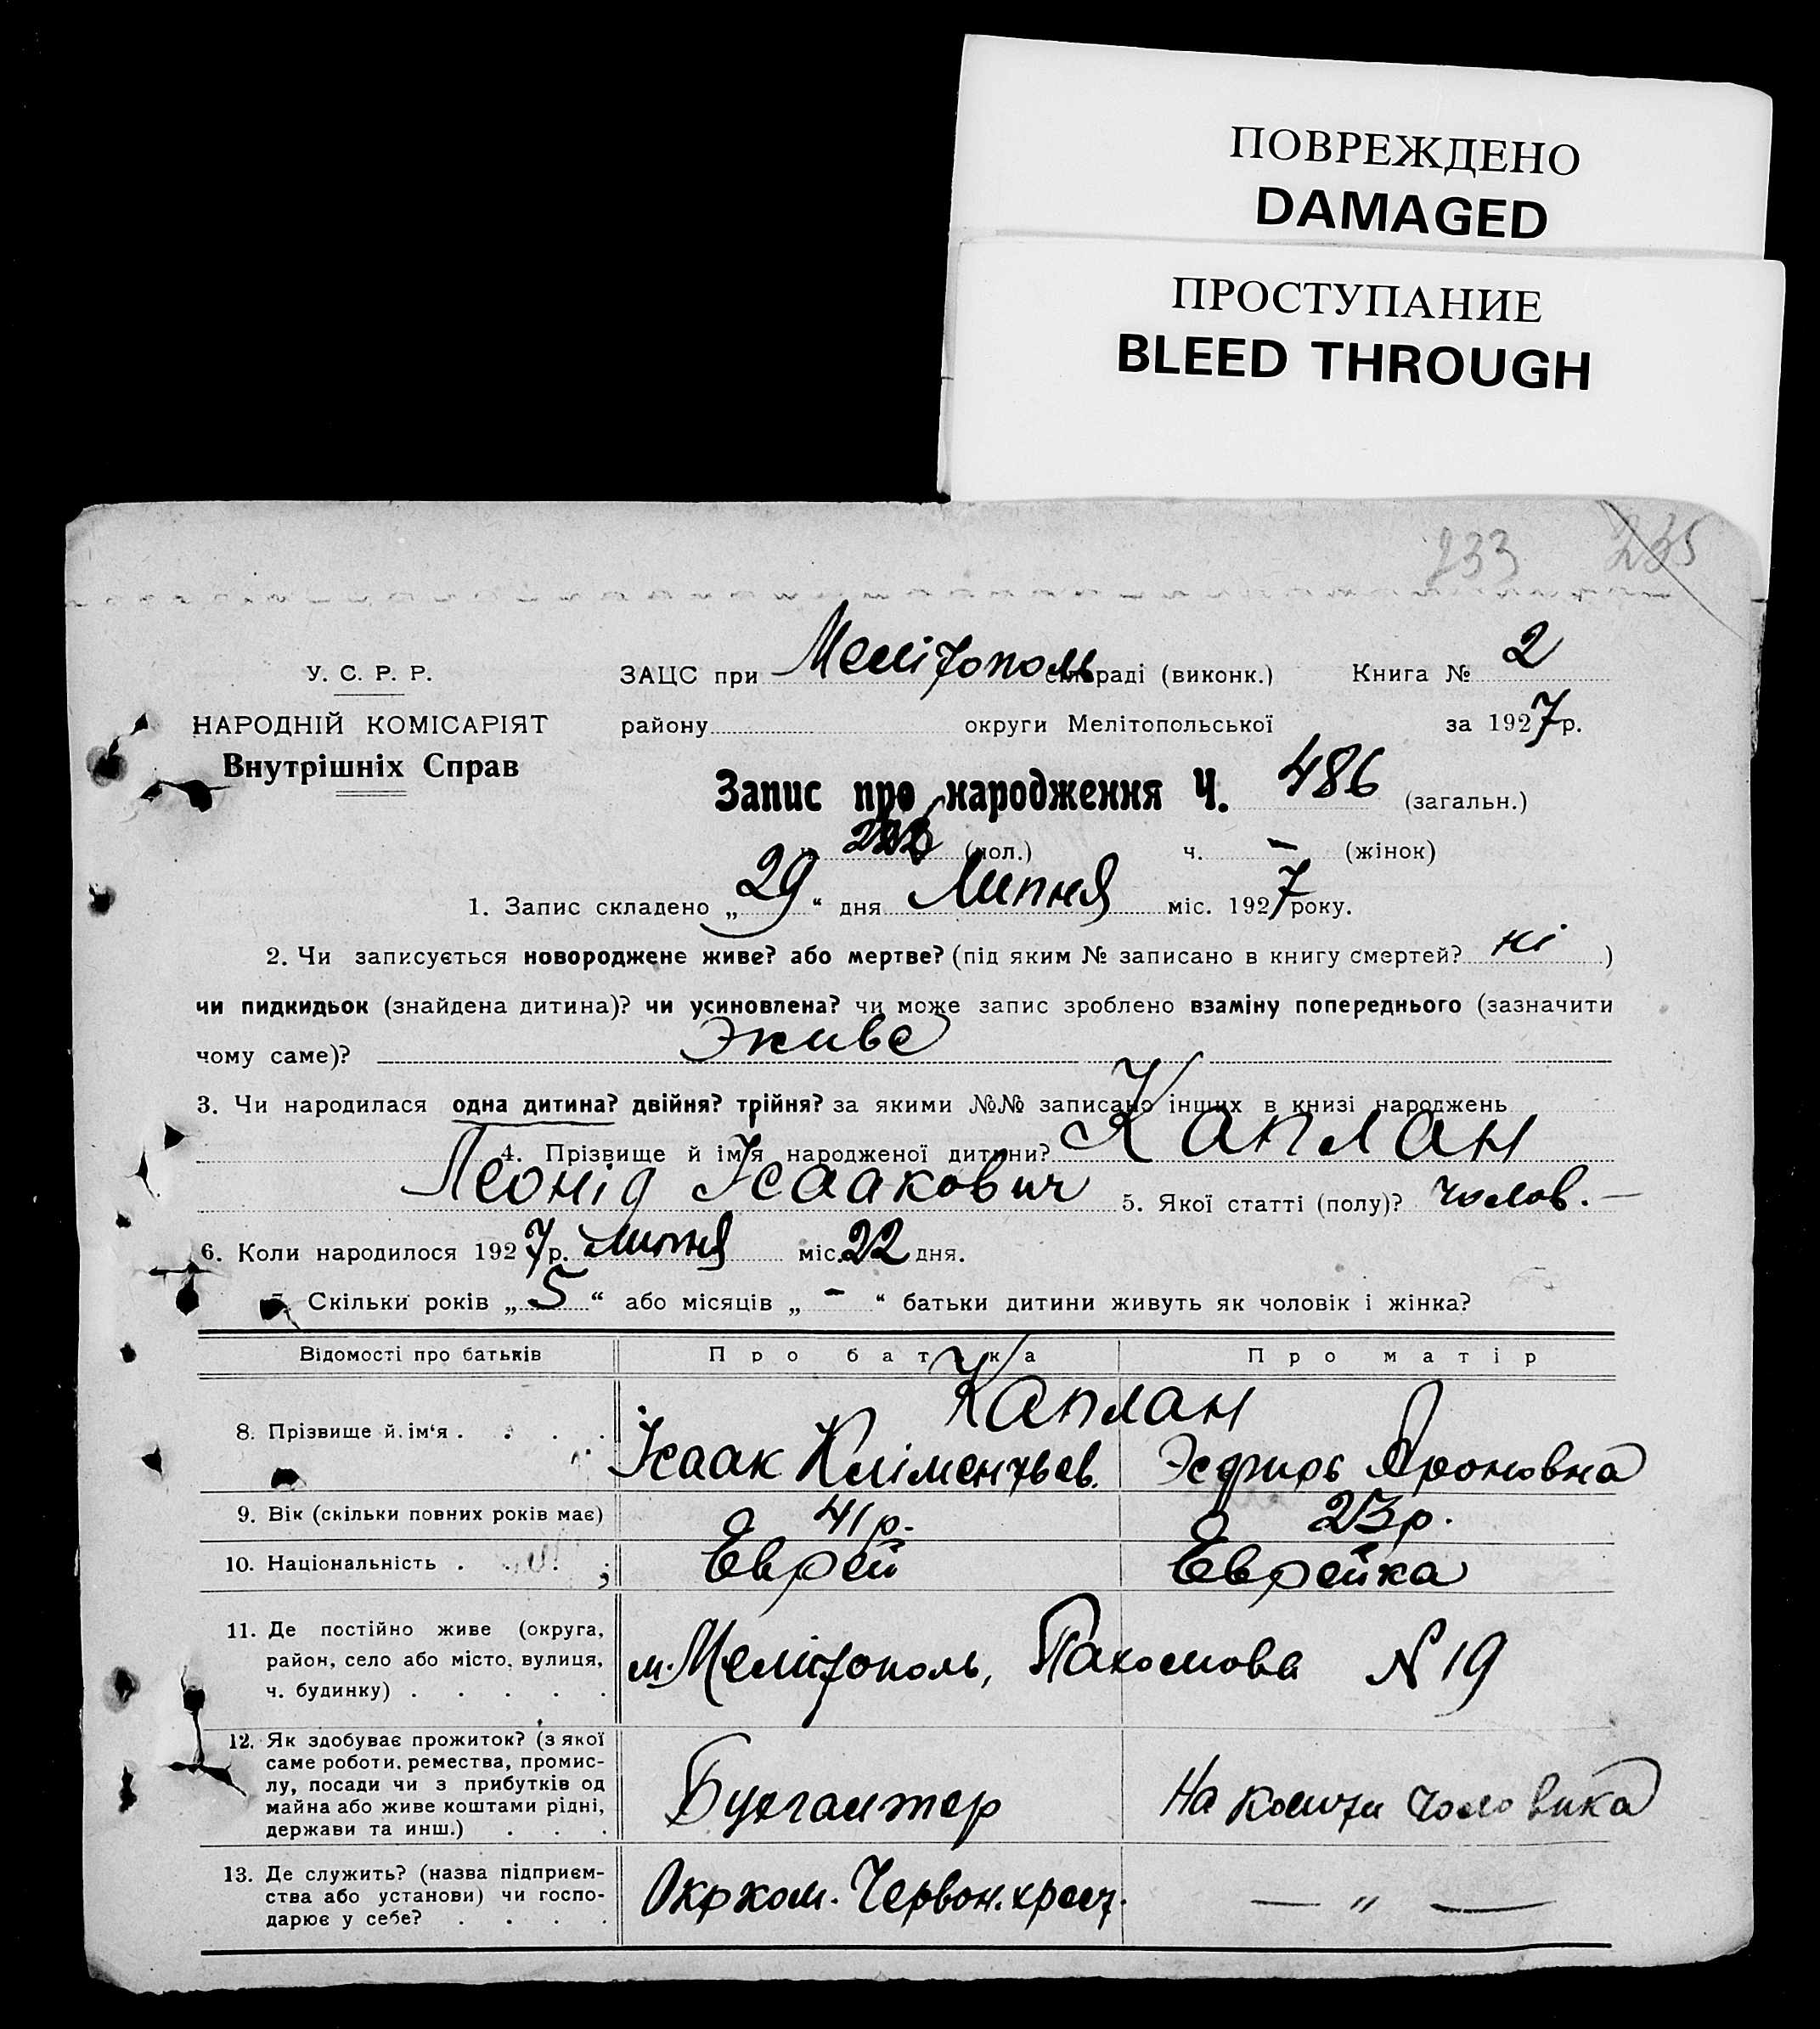 ПОВРЕЖДЕНО
DAMAGED
ПРОСТУПАНИЕ
BLEED THROUGH
233 235
У. С. Р. Р.
ЗАЦС при Мелітополь раді (виконк.) Книга № 2
НАРОДНІЙ КОМІСАРІЯТ
району округи Мелітопольської за 1927 р.
Внутрішніх Справ
Запис про народження Ч. 486 (загальн.)
(пол.) ч. – (жінок)
1. Запис складено „29“ дня Липня міс. 1927 року.
2. Чи записується новороджене живе? або мертве? (під яким № записано в книгу смертей? ні )
чи пидкидьок (знайдена дитина)? чи усиновлена? чи може запис зроблено взаміну попереднього (зазначити
чому саме)? живе
3. Чи народилася одна дитина? двійня? трійня? за якими №№ записано інших в книзі народжень
4. Прізвище й ім'я народженої дитини? Каплан
Леонід Ісаакович 5. Якої статті (полу)? чолов. –
6. Коли народилося 1927 р. липня міс. 22 дня.
Скільки років „5“ або місяців „–“ батьки дитини живуть як чоловік і жінка?
Відомості про батьків Про батька Про матір
Каплан
8. Прізвище й ім'я . . . . Ісаак Кліментьев. Эсфирь Ароновна
9. Вік (скільки повних років має) 41 р. 23 р.
10. Національність . Еврей Еврейка
11. Де постійно живе (округа,
район, село або місто, вулиця,
ч. будинку) . . . . .
м. Мелітополь, N 19
12. Як здобуває прожиток? (з якої
саме роботи, ремества, промис-
лу, посади чи з прибутків од
майна або живе коштами рідні,
держави та инш.) . . .
Бухгалтер На кошти чоловика
13. Де служить? (назва підприєм-
ства або установи) чи госпо-
дарює у себе? . . . .
Окрком. Червон. хрест. — „ —